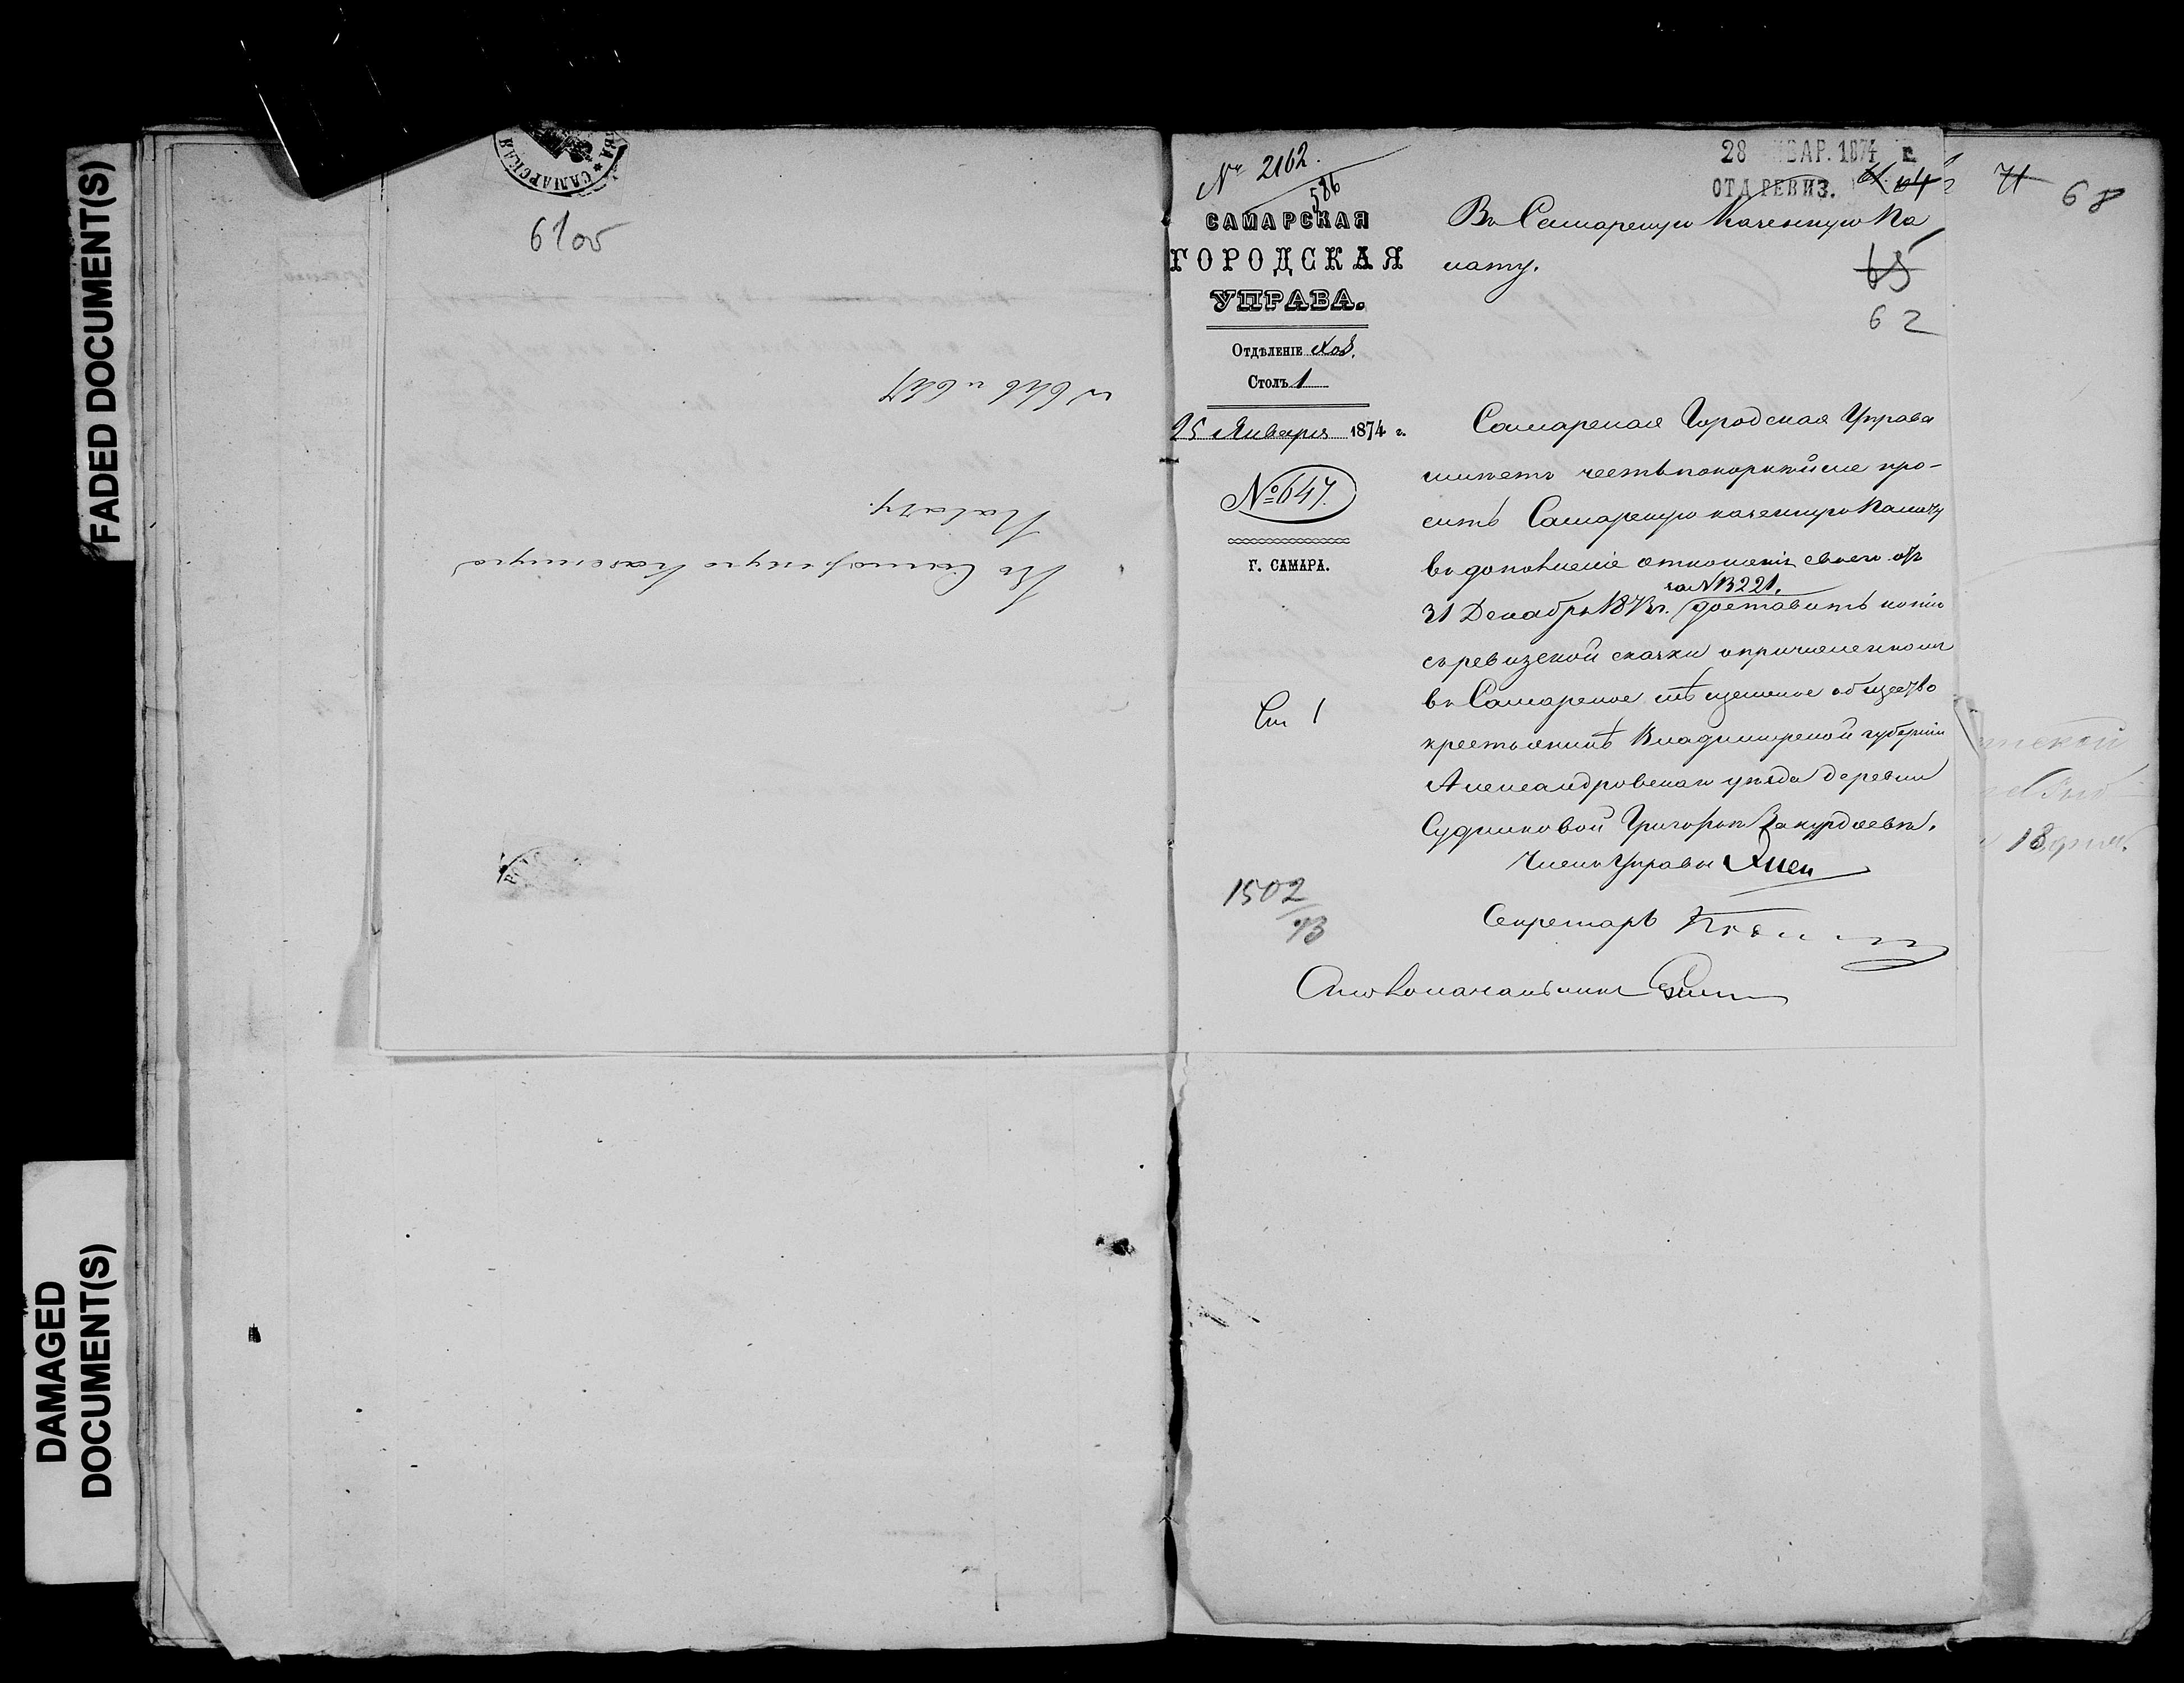 FADED DOCUMENT(S)
DAMAGED
DOCUMENT(S)
САМАРСКАЯ
6105
№ 646 и 647
Въ Самарскую Казенную
Палату.
№ 2162.
586
САМАРСКАЯ
ГОРОДСКАЯ
УПРАВА.
Отдѣленіе Хоз.
Столъ 1
25 Января 1874 г.
№ 647.
Г. САМАРА.
Ст 1
1502
/73
28 ЯНВАР. 1874 г.
ОТД РЕВИЗ.
64
Въ Самарскую Казенную Па
лату.
65
62
Самарская Городская Управа
имѣетъ честь покорнѣйше про-
сить Самарскую казенную Палату
въ дополненіе отношенія своего отъ
за № 13221.
31 Декабря 1873 г. доставить копію
съ ревизской сказки о причисленномъ
въ Самарское мѣщанское общество
крестьянинѣ Владимирской губерніи
Александровскаго уѣзда деревни
Судниковой Григорьѣ Закурдаевѣ.
Членъ Управы
Секретарь
Столоначальникъ
71
68